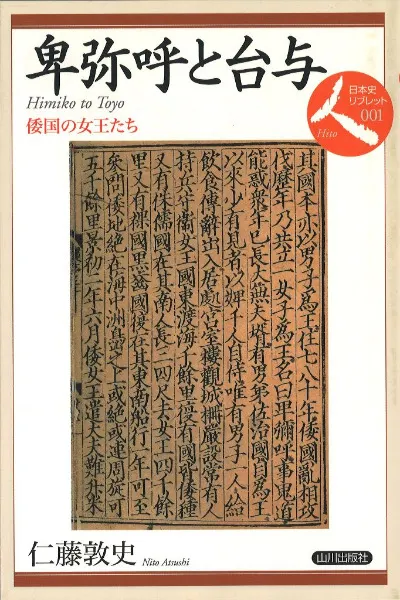 卑弥呼と台与
Himiko to Toyo
倭国の女王たち
日本史
リブレット
001
人
Hito
其國本亦以男子爲王住七八十年倭國亂相攻
伐歷年乃共立一女子爲王名曰卑彌呼事鬼道
能惑衆年已長大無夫壻有男弟佐治國自爲王
以來少有見者以婢千人自侍唯有男子一人給
飲食傳辭出入居處宮室樓觀城柵嚴設常有人
持兵守衛女王國東渡海千餘里復有國皆倭種
又有侏儒國在其南人長三四尺去女王四千餘
里又有裸國黑齒國復在其東南船行一年可至
參問倭地絕在海中洲㠀之上或絕或連周旋可
五千餘里景初二年六月倭女王遣大夫難升米
仁藤敦史
Nito Atsushi
山川出版社